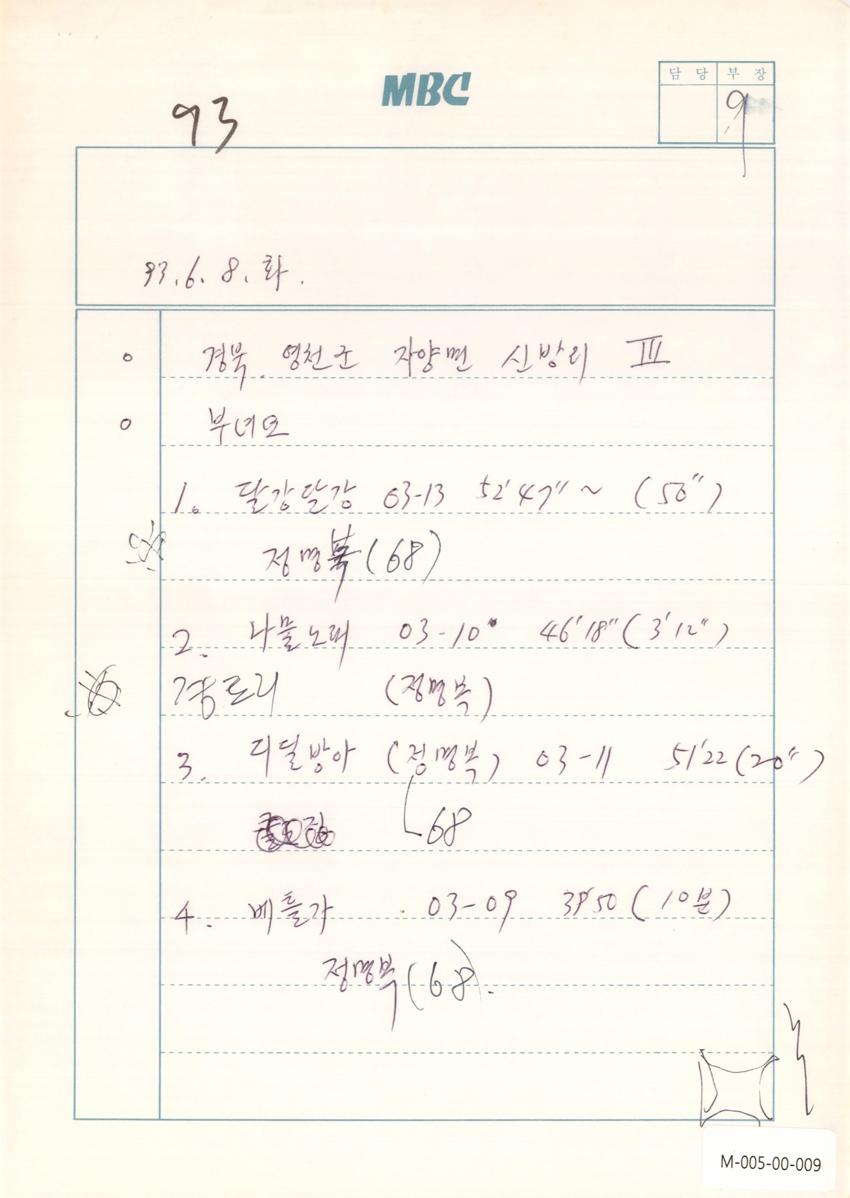 MBC
담 당 부 장
93
9
93. 6. 8. 화.
o 경북. 영천군 자양면 신방리 III
o 부녀요
1. 달강달강 03-13 52'47"~ (50")
정명복(68)
2. 나물노래 03-10 46'18"(3'12")
(정명복)
3. 디딜방아 (정명복) 03-11 51'22(20")
68
4. 베틀가 03-09 39'50 (10분)
정명복(68).
M-005-00-009